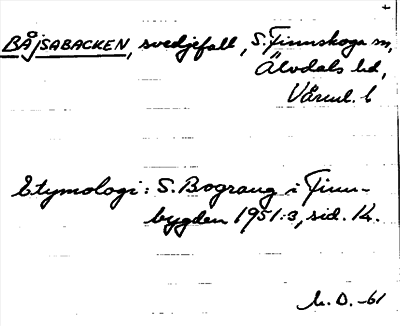 BÅJSABACKEN, svedjefall, S. Finnskoga sn,
Älvdals hd,
Värml. l.
Etymologi: S. Bograng i Finn-
bygden 1951:3, sid. 14.
M. O. -61